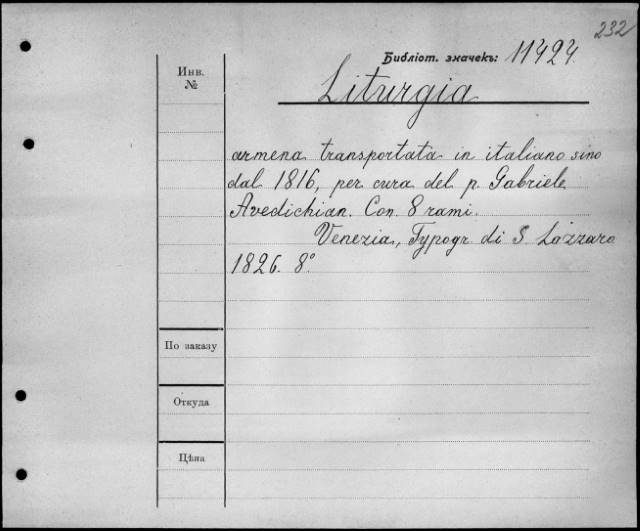 232
Библіот. значекъ: 11424.
Инв.
№
Liturgia
armena transportata in italiano sino
dal 1816, per cura del p. Gabriele
Avedichian. Con 8 rami.
Venezia, Typogr. di S. Lazzaro
1826. 8°
По заказу
Откуда
Цѣна